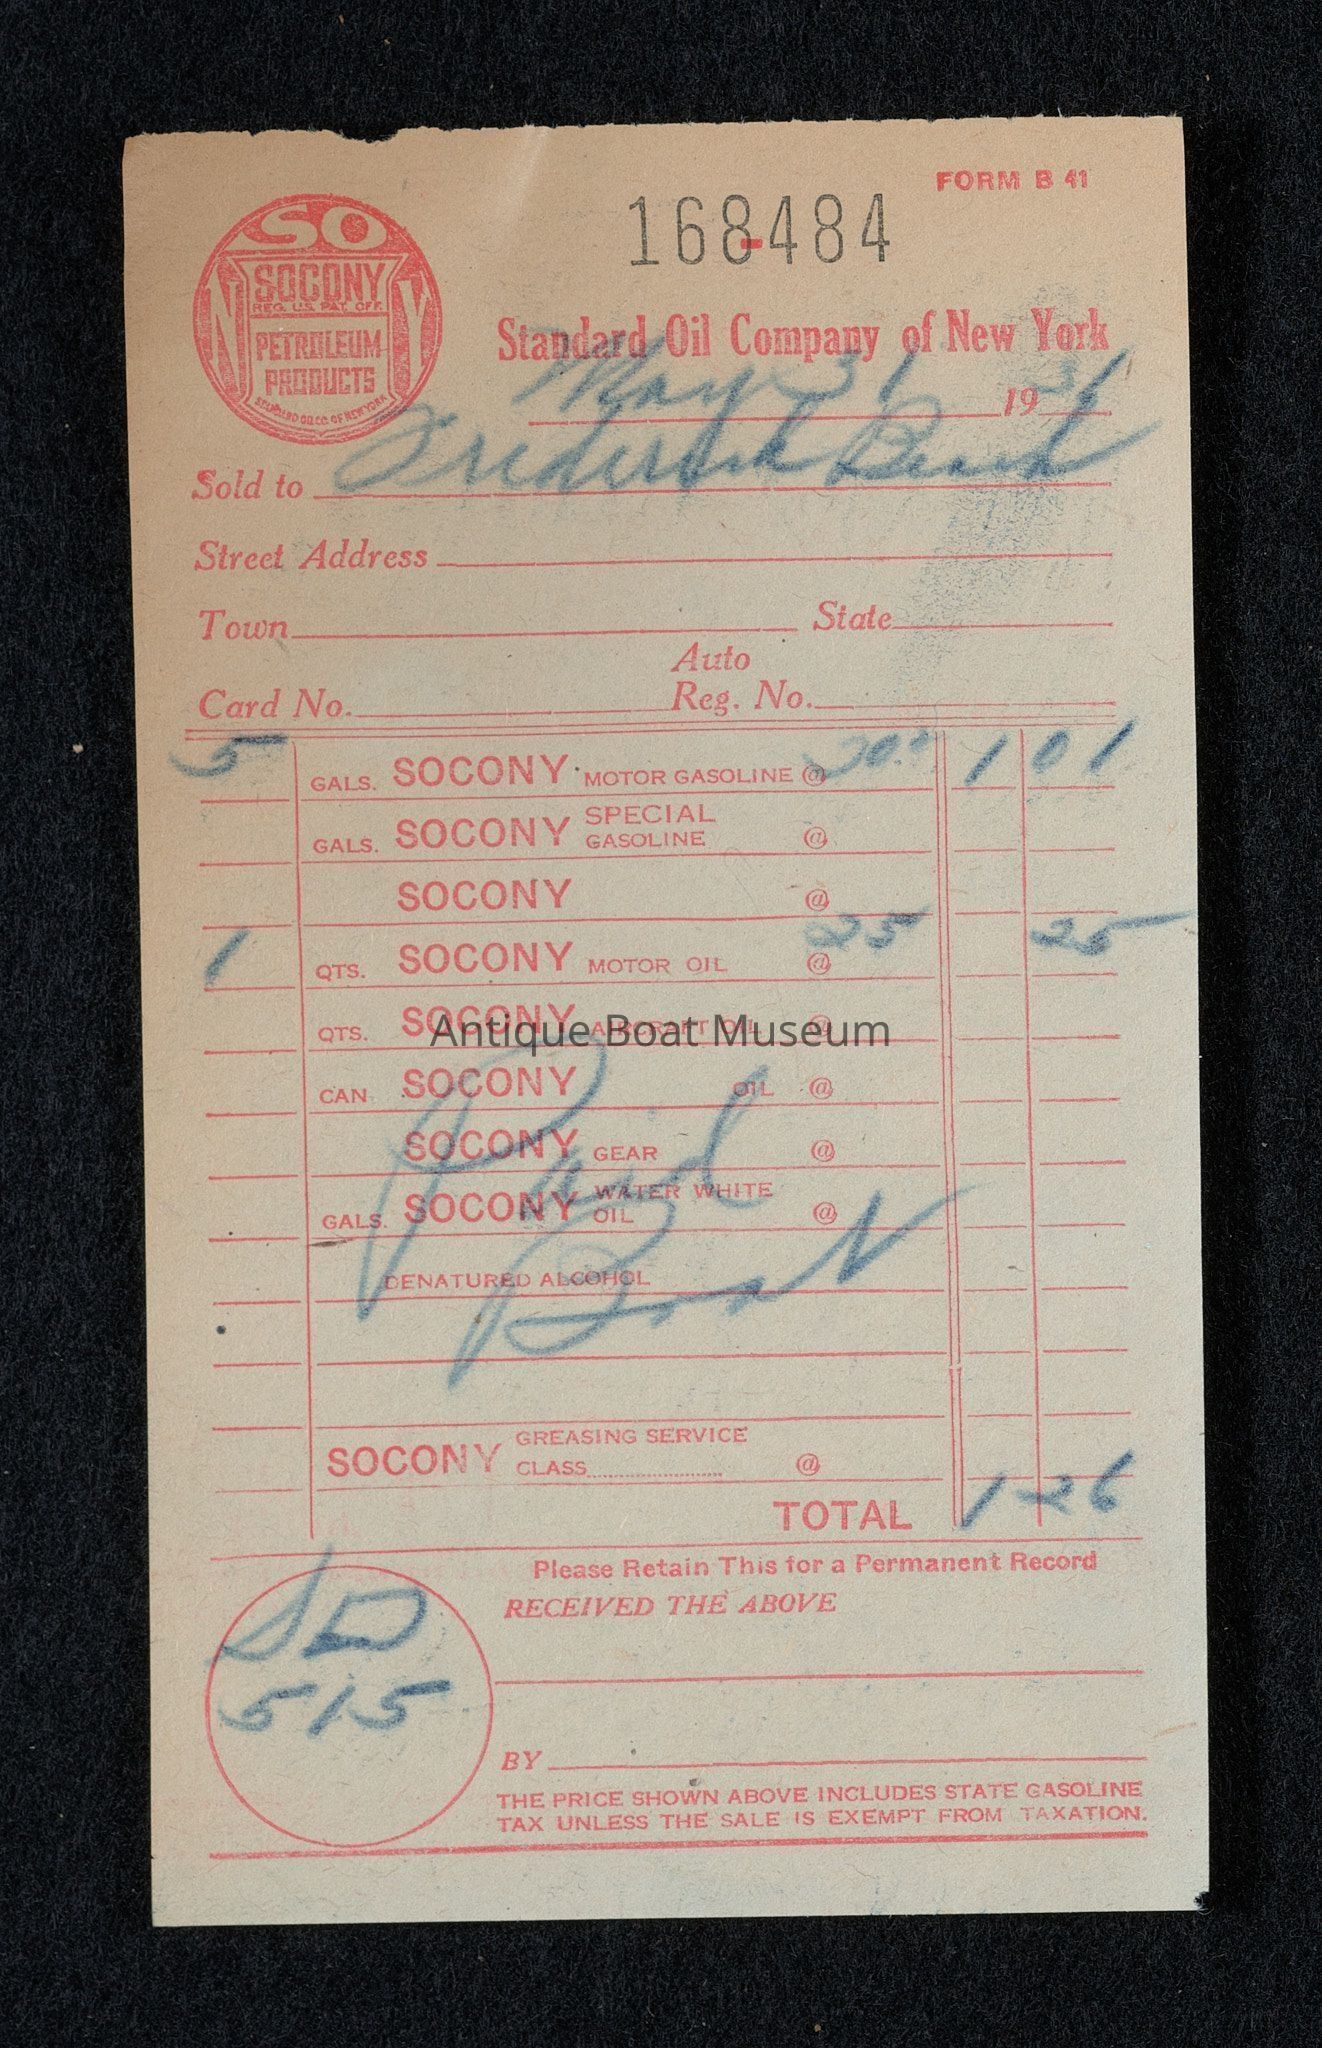 FORM B 41
168-484
SO
NY
SOCONY
REG. U.S. PAT. OFF.
PETROLEUM
PRODUCTS
STANDARD OIL CO. OF NEW YORK
Standard Oil Company of New York
May 31 1931
Sold to Frederick
Street Address
Town State
Auto
Card No. Reg. No.
5 GALS. SOCONY MOTOR GASOLINE @ 20 1 01
GALS. SOCONY SPECIAL GASOLINE @
SOCONY @
1 QTS. SOCONY MOTOR OIL @ 25 25
QTS. SOCONY AIRCRAFT OIL @
Antique Boat Museum
CAN SOCONY OIL @
SOCONY GEAR @
Paid
GALS. SOCONY WATER WHITE OIL @
DENATURED ALCOHOL
SOCONY GREASING SERVICE
CLASS @
TOTAL 1 26
Please Retain This for a Permanent Record
RECEIVED THE ABOVE
SD
515
BY
THE PRICE SHOWN ABOVE INCLUDES STATE GASOLINE
TAX UNLESS THE SALE IS EXEMPT FROM TAXATION.